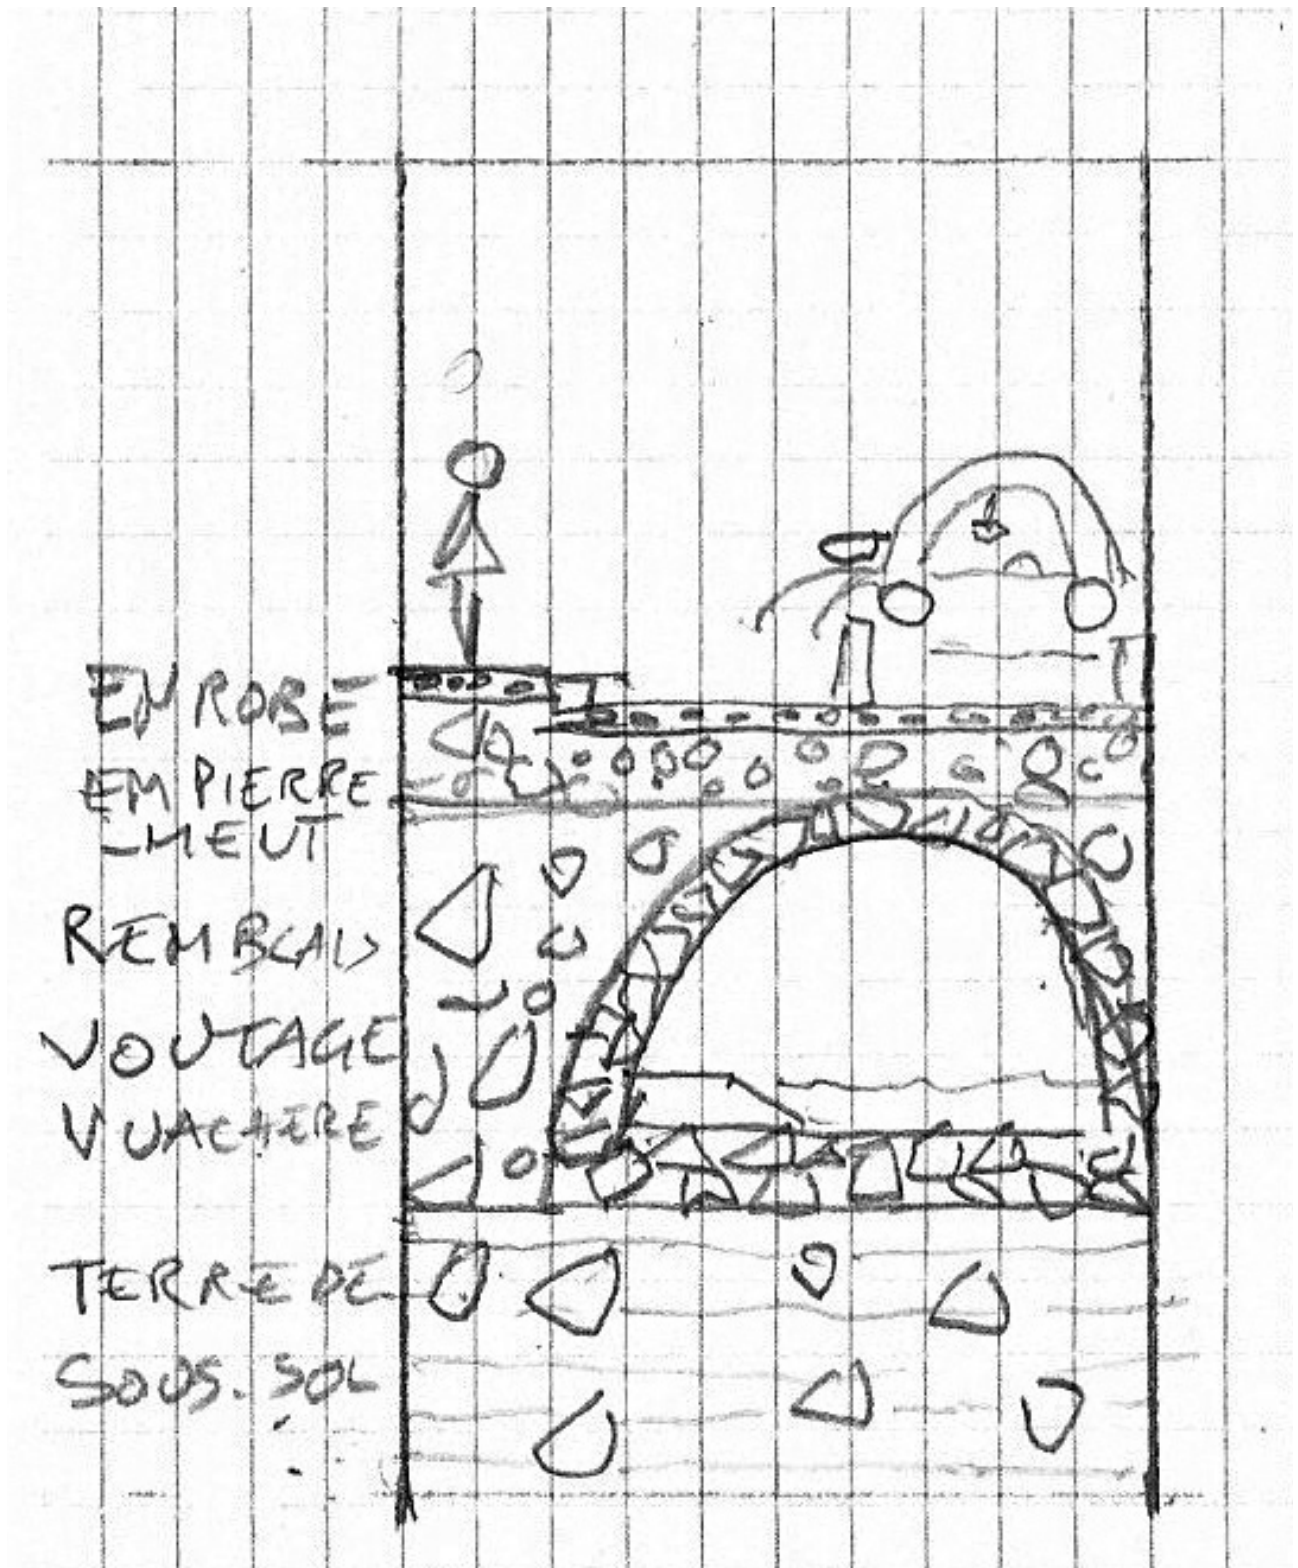 ENROBÉ
EMPIERRE
-MENT
REMBLAIS
VOUTAGE
VUACHÈRE
TERRE DE
SOUS-SOL